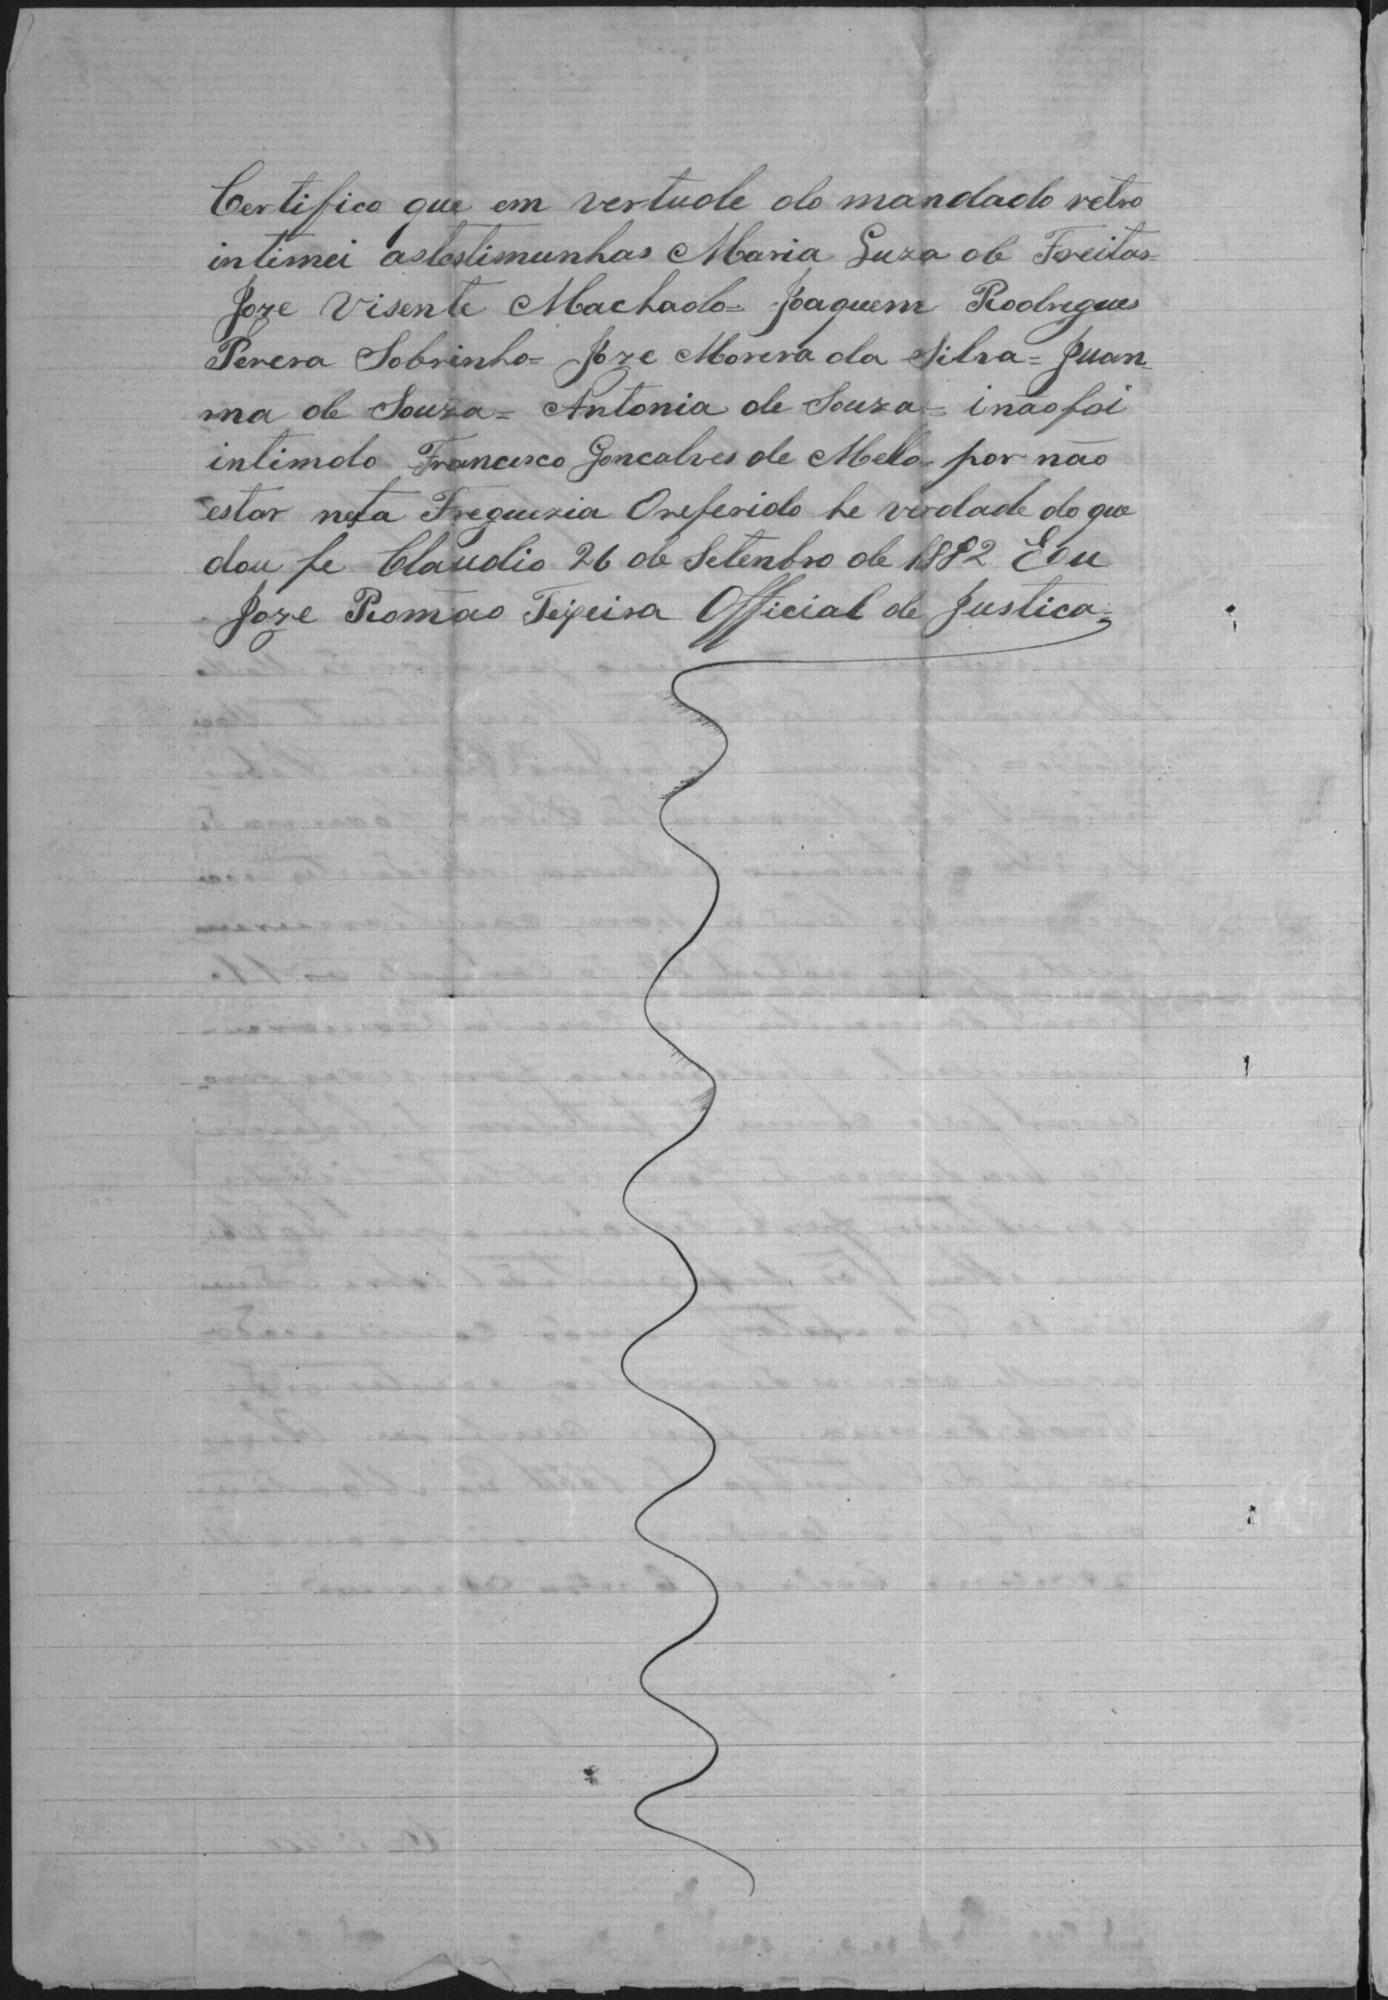 Certifico que em vertude do mandado retro
intimei astestimunhas Maria Luza de Freitas=
Joze Visente Machado= Joaquem Rodregues
Perera Sobrinho= Joze Morera da Silva= Juan-
na de Souza= Antonia de Souza= i não foi
intimdo Francisco Goncalves de Melo por não
estar nesta Freguezia O referido he verdade do que
dou fe Claudio 26 de Setenbro de 1882 Eeu
Joze Romão Teixeira Official de Justica